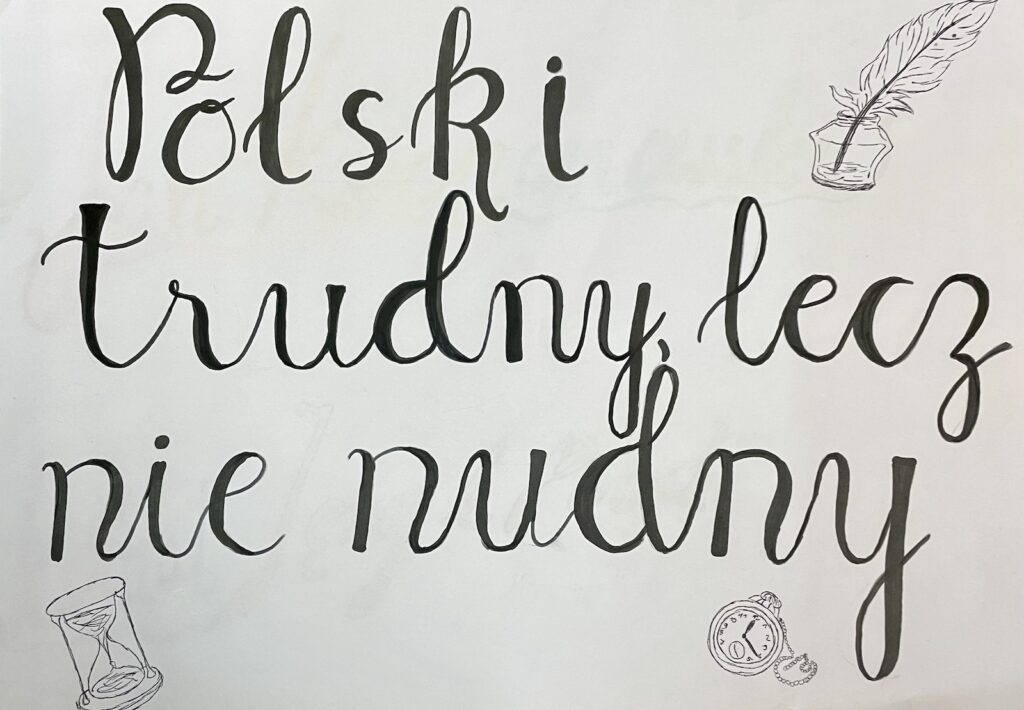 Polski
trudny, lecz
nie nudny